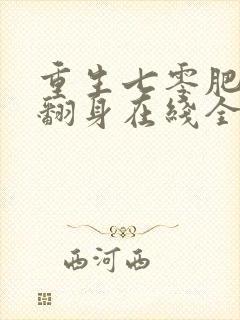 重生七零肥
翻身在线全
西河西